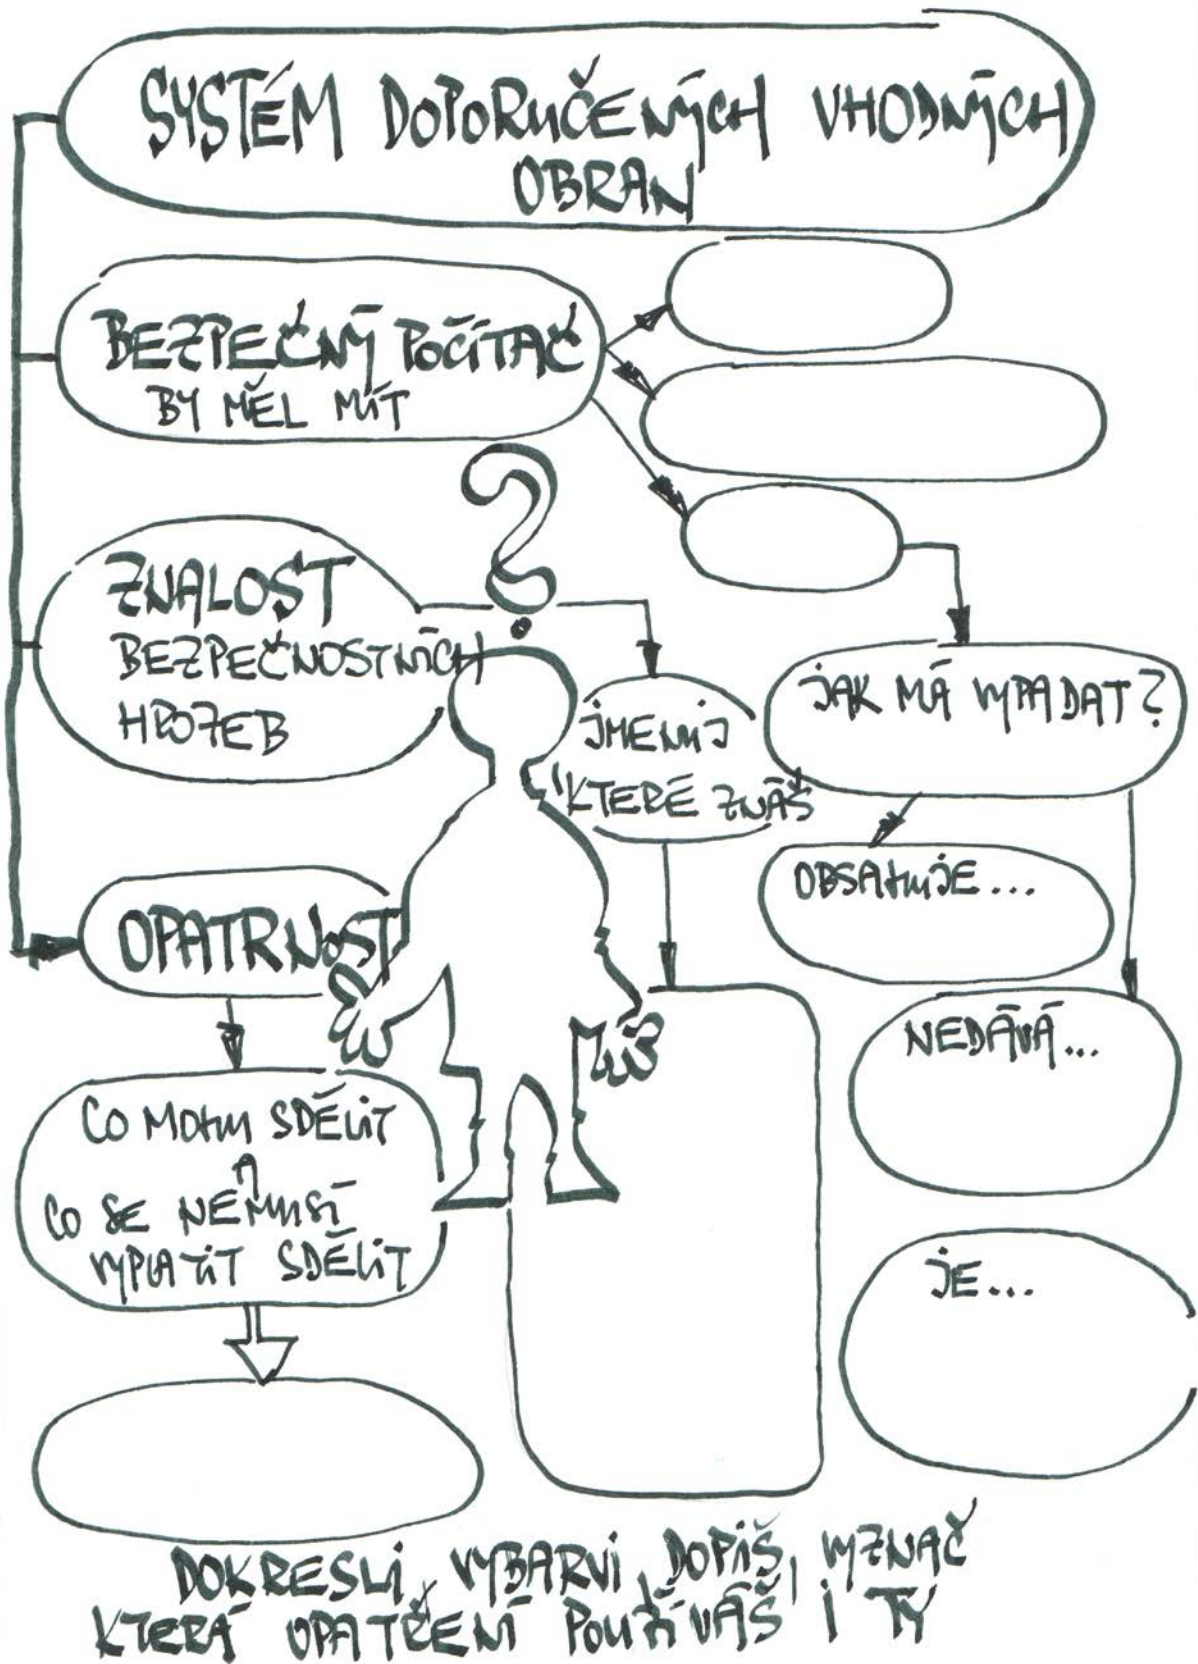 SYSTÉM DOPORUČENÝCH VHODNÝCH
OBRAN
BEZPEČNÝ POČÍTAČ
BY MĚL MÍT
ZNALOST
BEZPEČNOSTNÍCH
HROZEB
?
JMENUJ
KTERÉ ZNÁŠ
JAK MÁ VYPADAT?
OBSAHUJE...
NEDÁVÁ...
JE...
OPATRNOST
CO MOHU SDĚLIT
A
CO SE NEMUSÍ
VYPLATIT SDĚLIT
DOKRESLI, VYBARVI, DOPIŠ, VYZNAČ
KTERÁ OPATŘENÍ POUŽÍVÁŠ I TY